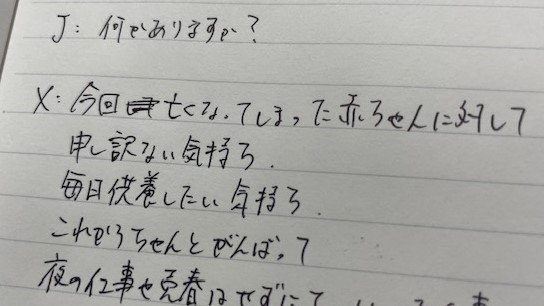 J: 何かありますか?
X: 今回亡くなってしまった赤ちゃんに対して
申し訳ない気持ち.
毎日供養したい気持ち.
これからちゃんとがんばって
夜の仕事や売春はせずに